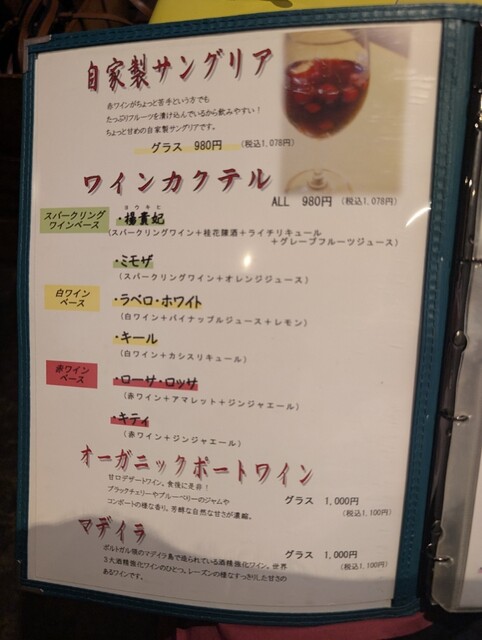 自家製サングリア
赤ワインがちょっと苦手という方でも
たっぷりフルーツを漬け込んでいるから飲みやすい！
ちょっと甘めの自家製サングリアです。
グラス 980円 （税込1,078円）
ワインカクテル
ALL 980円 （税込1,078円）
スパークリング
ワインベース
ヨウキヒ
・楊貴妃
（スパークリングワイン＋桂花陳酒＋ライチリキュール
＋グレープフルーツジュース）
・ミモザ
（スパークリングワイン＋オレンジジュース）
白ワイン
ベース
・ラベロ・ホワイト
（白ワイン＋パイナップルジュース＋レモン）
・キール
（白ワイン＋カシスリキュール）
赤ワイン
ベース
・ローサ・ロッサ
（赤ワイン＋アマレット＋ジンジャエール）
・キティ
（赤ワイン＋ジンジャエール）
オーガニックポートワイン
甘口デザートワイン。食後に是非！
ブラックチェリーやブルーベリーのジャムや
コンポートの様な香り。芳醇な自然な甘さが濃縮。
グラス 1,000円
（税込1,100円）
マデイラ
ポルトガル領のマデイラ島で造られている酒精強化ワイン。世界
３大酒精強化ワインのひとつ。レーズンの様なすっきりした甘さの
あるワインです。
グラス 1,000円
（税込1,100円）